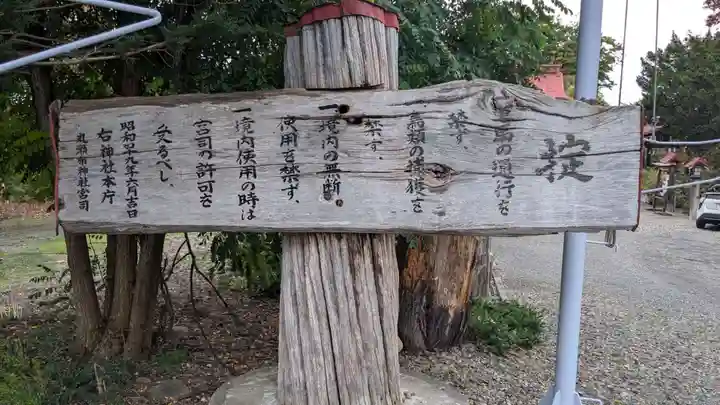 掟
一車馬の通行を
禁ず、
一鳥類の捕獲を
禁ず、
一境内の無断
使用を禁ず、
一境内使用の時は
宮司の許可を
受るべし、
昭和五十九年六月吉日
右神社本庁
神社宮司